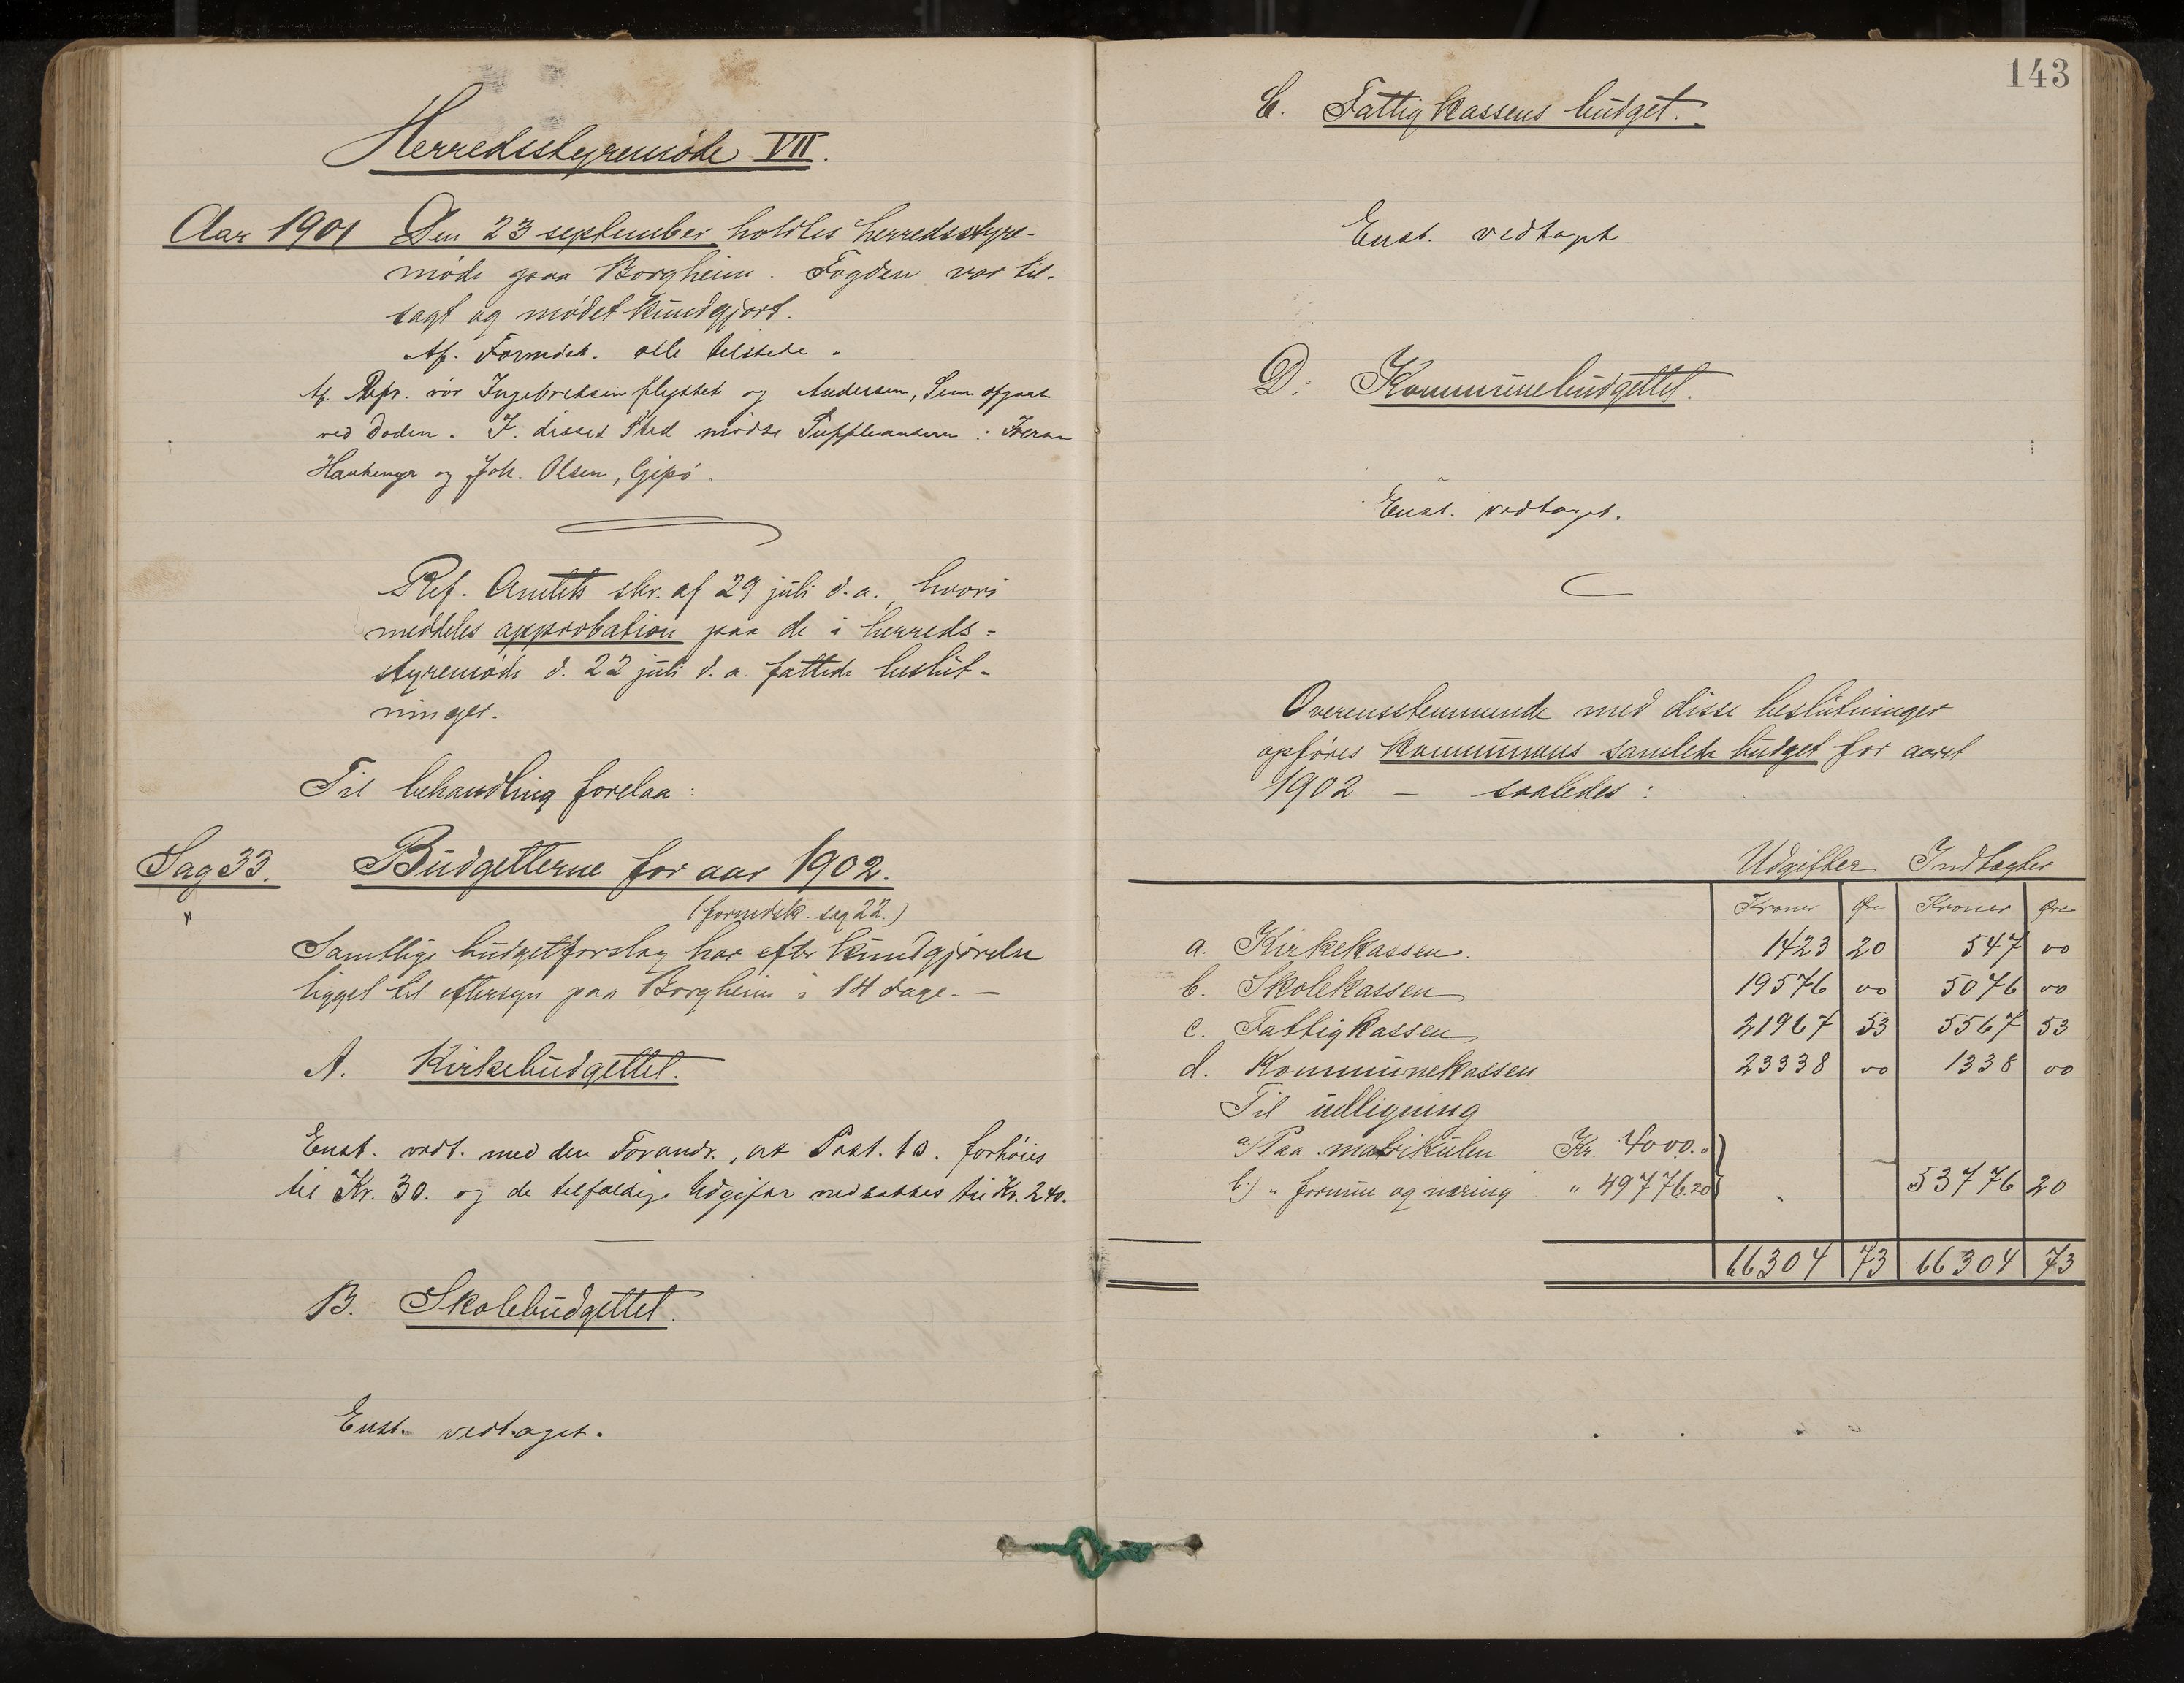 Herredsstyremøde VII.
Aar 1901 Den 23 september holdtes herredsstyre-
møde paa Borgheim. Fogden var til-
sagt og mødet kundgjort.
Af Formdsk. alle tilstede.
Af Repr. var Ingebretsen flyttet og Andersen, Sem afgaat
ved Døden. I disses Sted mødte Suppleanterne:
og Joh. Olsen, Gipø.
Ref. Amtets skr. af 29 juli d.a., hvori
meddeles approbation paa de i herreds-
styremøde d. 22 juli d.a. fattede beslut-
ninger.
Til behandling forelaa:
Sag 33. Budgetterne for aar 1902.
(formdsk. sag 22.)
Samtlige budgetforslag har efter kundgjørelse
ligget til eftersyn paa Borgheim i 14 dage. —
A. Kirkebudgettet.
Enst. vedt. med den Forandr., at Post. 10. forhøies
til Kr. 30. og de tilfældige Udgifter nedsættes til Kr. 240.
B. Skolebudgettet.
Enst. vedtaget.
143
C. Fattigkassens budget.
Enst. vedtaget
D. Kommunebudgettet.
Enst. vedtaget.
Overensstemmende med disse beslutninger
opføres kommunens samlede budget for aaret
1902 — saaledes:
Udgifter Indtægter
Kroner Øre Kroner Øre
a. Kirkekassen. 1423 20 547 00
b. Skolekassen 19576 00 5076 00
c. Fattigkassen 21967 53 5567 53
d. Kommunekassen 23338 00 1338 00
Til udligning
a.) Paa matrikulen Kr. 4000.
b.) " formue og næring " 49776.20 53776 20
66304 73 66304 73